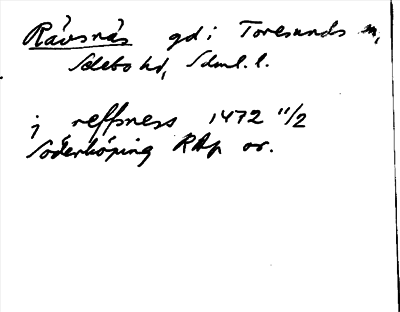 Rävsnäs gd i Toresunds sn,
Selebo hd, Södml. l.
j reffsness 1472 11/2
Söderköping RAp or.